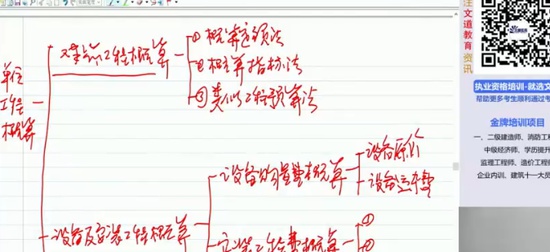 单位
工程
概算
建筑工程概算
①概算定额法
②概算指标法
③类似工程预算法
设备及安装工程概算
设备购置费概算
设备原价
设备运杂费
安装工程费概算
①
②
注文道教育资讯
执业资格培训-就选文
帮助更多考生顺利通过考
金牌培训项目
一、二级建造师、消防工程
中级经济师、学历提升
监理工程师、造价工程师
企业内训、建筑十一大员